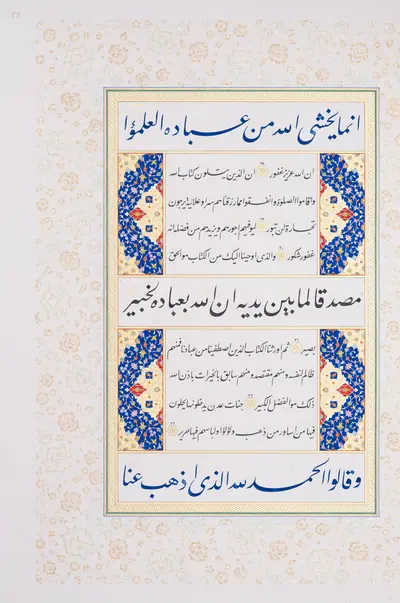 ٣٤
انما يخشى الله من عباده العلمؤا
ان الله عزيز غفور ان الذين يتلون كتاب الله
واقاموا الصلوة وانفقوا مما رزقناهم سرا وعلانية يرجون
تجارة لن تبور ليوفيهم اجورهم ويزيدهم من فضله انه
غفور شكور والذى اوحينا اليك من الكتاب هو الحق
مصدقا لما بين يديه ان الله بعباده لخبير
بصير ثم اورثنا الكتاب الذين اصطفينا من عبادنا فمنهم
ظالم لنفسه ومنهم مقتصد ومنهم سابق بالخيرات باذن الله
ذلك هو الفضل الكبير جنات عدن يدخلونها يحلون
فيها من اساور من ذهب ولؤلؤا ولباسهم فيها حرير
وقالوا الحمد لله الذى اذهب عنا